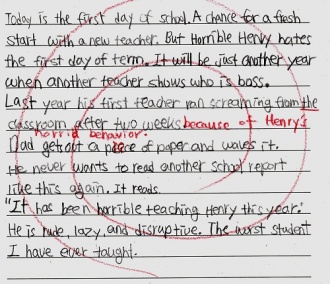 Today is the first day of school. A chance for a fresh
start with a new teacher. But Horrible Henry hates
the first day of term. It will be just another year
when another teacher shows who is boss.
Last year his first teacher ran screaming from the
classroom after two weeks because of Henry's
horrid behavior.
Dad get out a piece of paper and waves it.
He never wants to read another school report
like this again. It reads.
"It has been horrible teaching Henry this year."
He is rude, lazy, and disruptive. The worst student
I have ever taught.